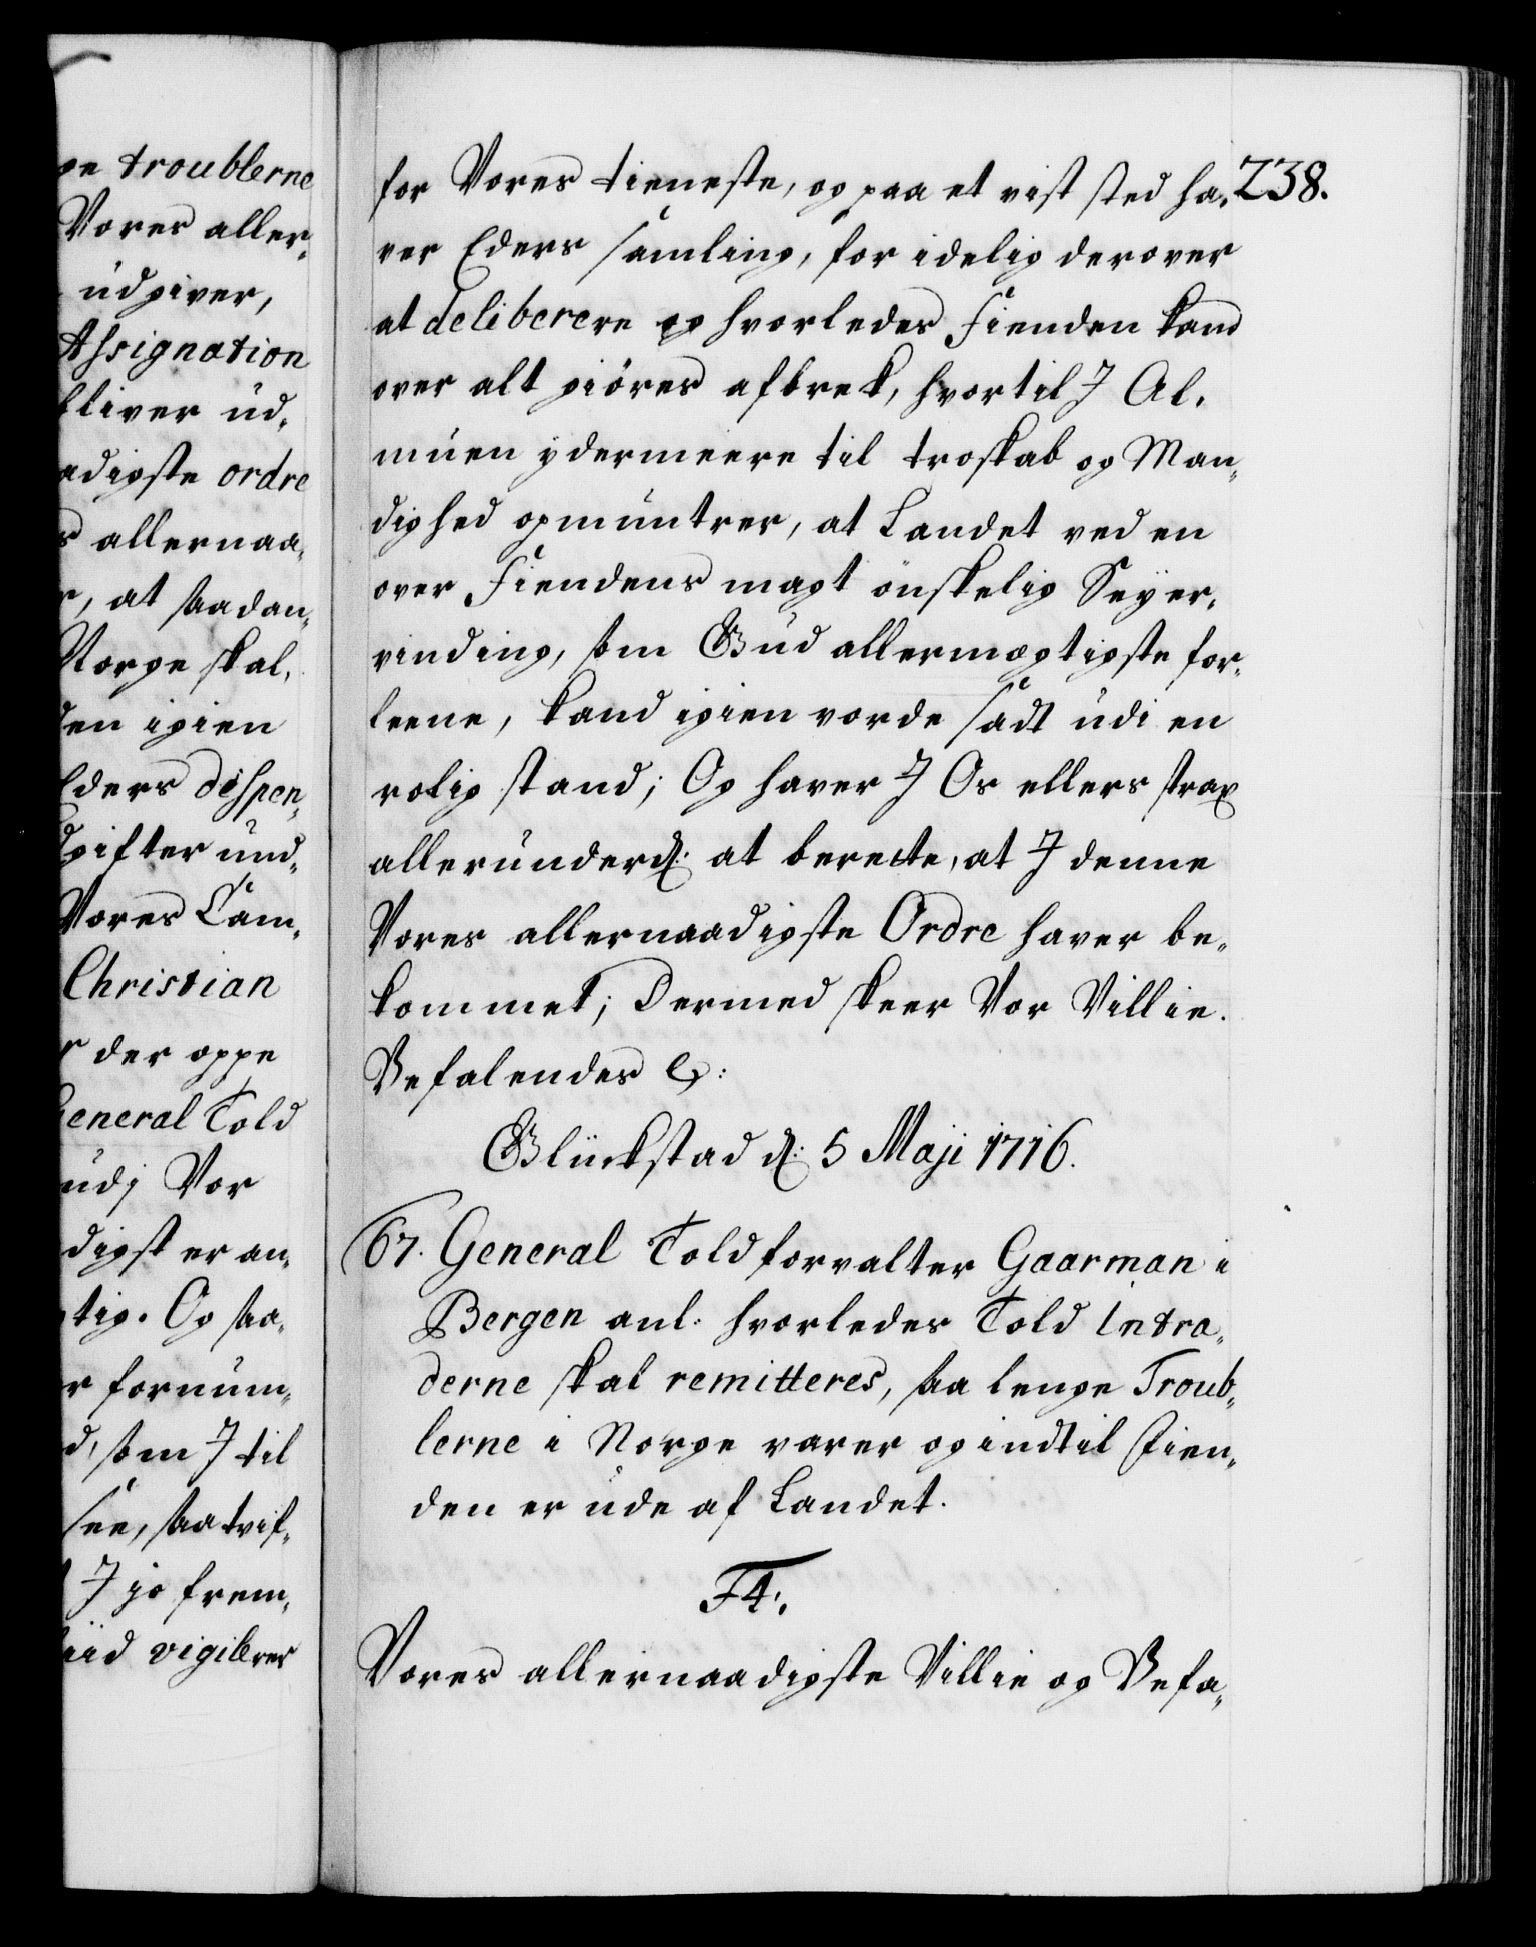 ge troublerne
Vores aller-
udgiver,
Assignation
bliver ud-
adigste ordre
s allernaa-
r, at saadan-
Norge skal,
den igien
Eders dispen-
dgifter und-
Vores Cam-
Christian
r der oppe
General Told
udj Vor
digst er an-
gtig. Og saa-
er fornum-
d, som J til
see, saa vis-
J jo frem-
liid vigilerer
238.
for Vores tieneste, og paa et vist sted ha-
ver Eders samling, for idelig derover
at deliberere og hvorledes Fienden kand
over alt giöres afbrek, hvortil J Al-
muen ydermeere til troskab og Man-
dighed opmuntrer, at Landet ved en
over Fiendens magt önskelig Seyer-
vinding, som Gud allermegtigste for-
leene, kand igien vorde sadt udi en
rolig stand; Og haver J Os ellers strax
allerunderd: at berette, at J denne
Vores allernaadigste Ordre haver be-
kommet; Dermed skeer Vor Villie.
Befalendes &:
Glückstad d: 5 Maji 1716.
67. General Toldforvalter Gaarman i
Bergen anl: hvorledes Told intra-
derne skal remitteres, saa lenge Troub-
lerne i Norge varer og indtil Fien-
den er ude af Landet.
F4:
Vores allernaadigste Villie og Befa-